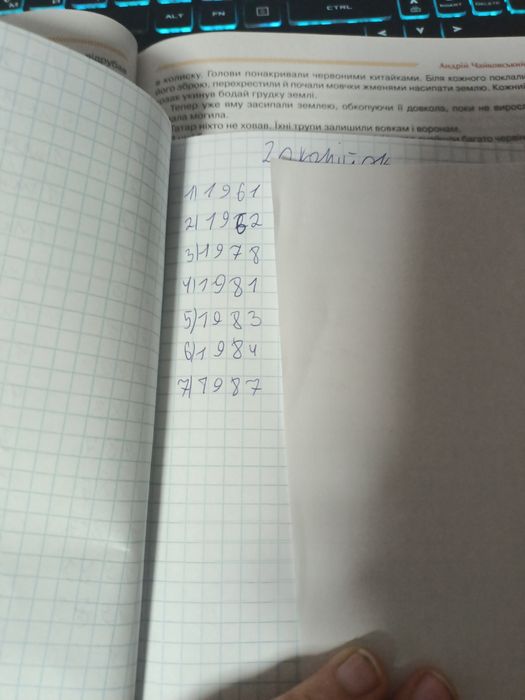 ALT
FN
CTRL
INSERT
DELETE
Андрій Чайковський
в колиску. Голови понакривали червоними китайками. Біля кожного поклали
його зброю, перехрестили й почали мовчки жменями насипати землю. Кожний
укинув бодай грудку землі.
Тепер уже яму засипали землею, обкопуючи її довкола, поки не
могила.
Татар ніхто не ховав. Їхні трупи залишили вовкам і воронам.
1) 1961
2) 1962
3) 1978
4) 1981
5) 1983
6) 1984
7) 1987